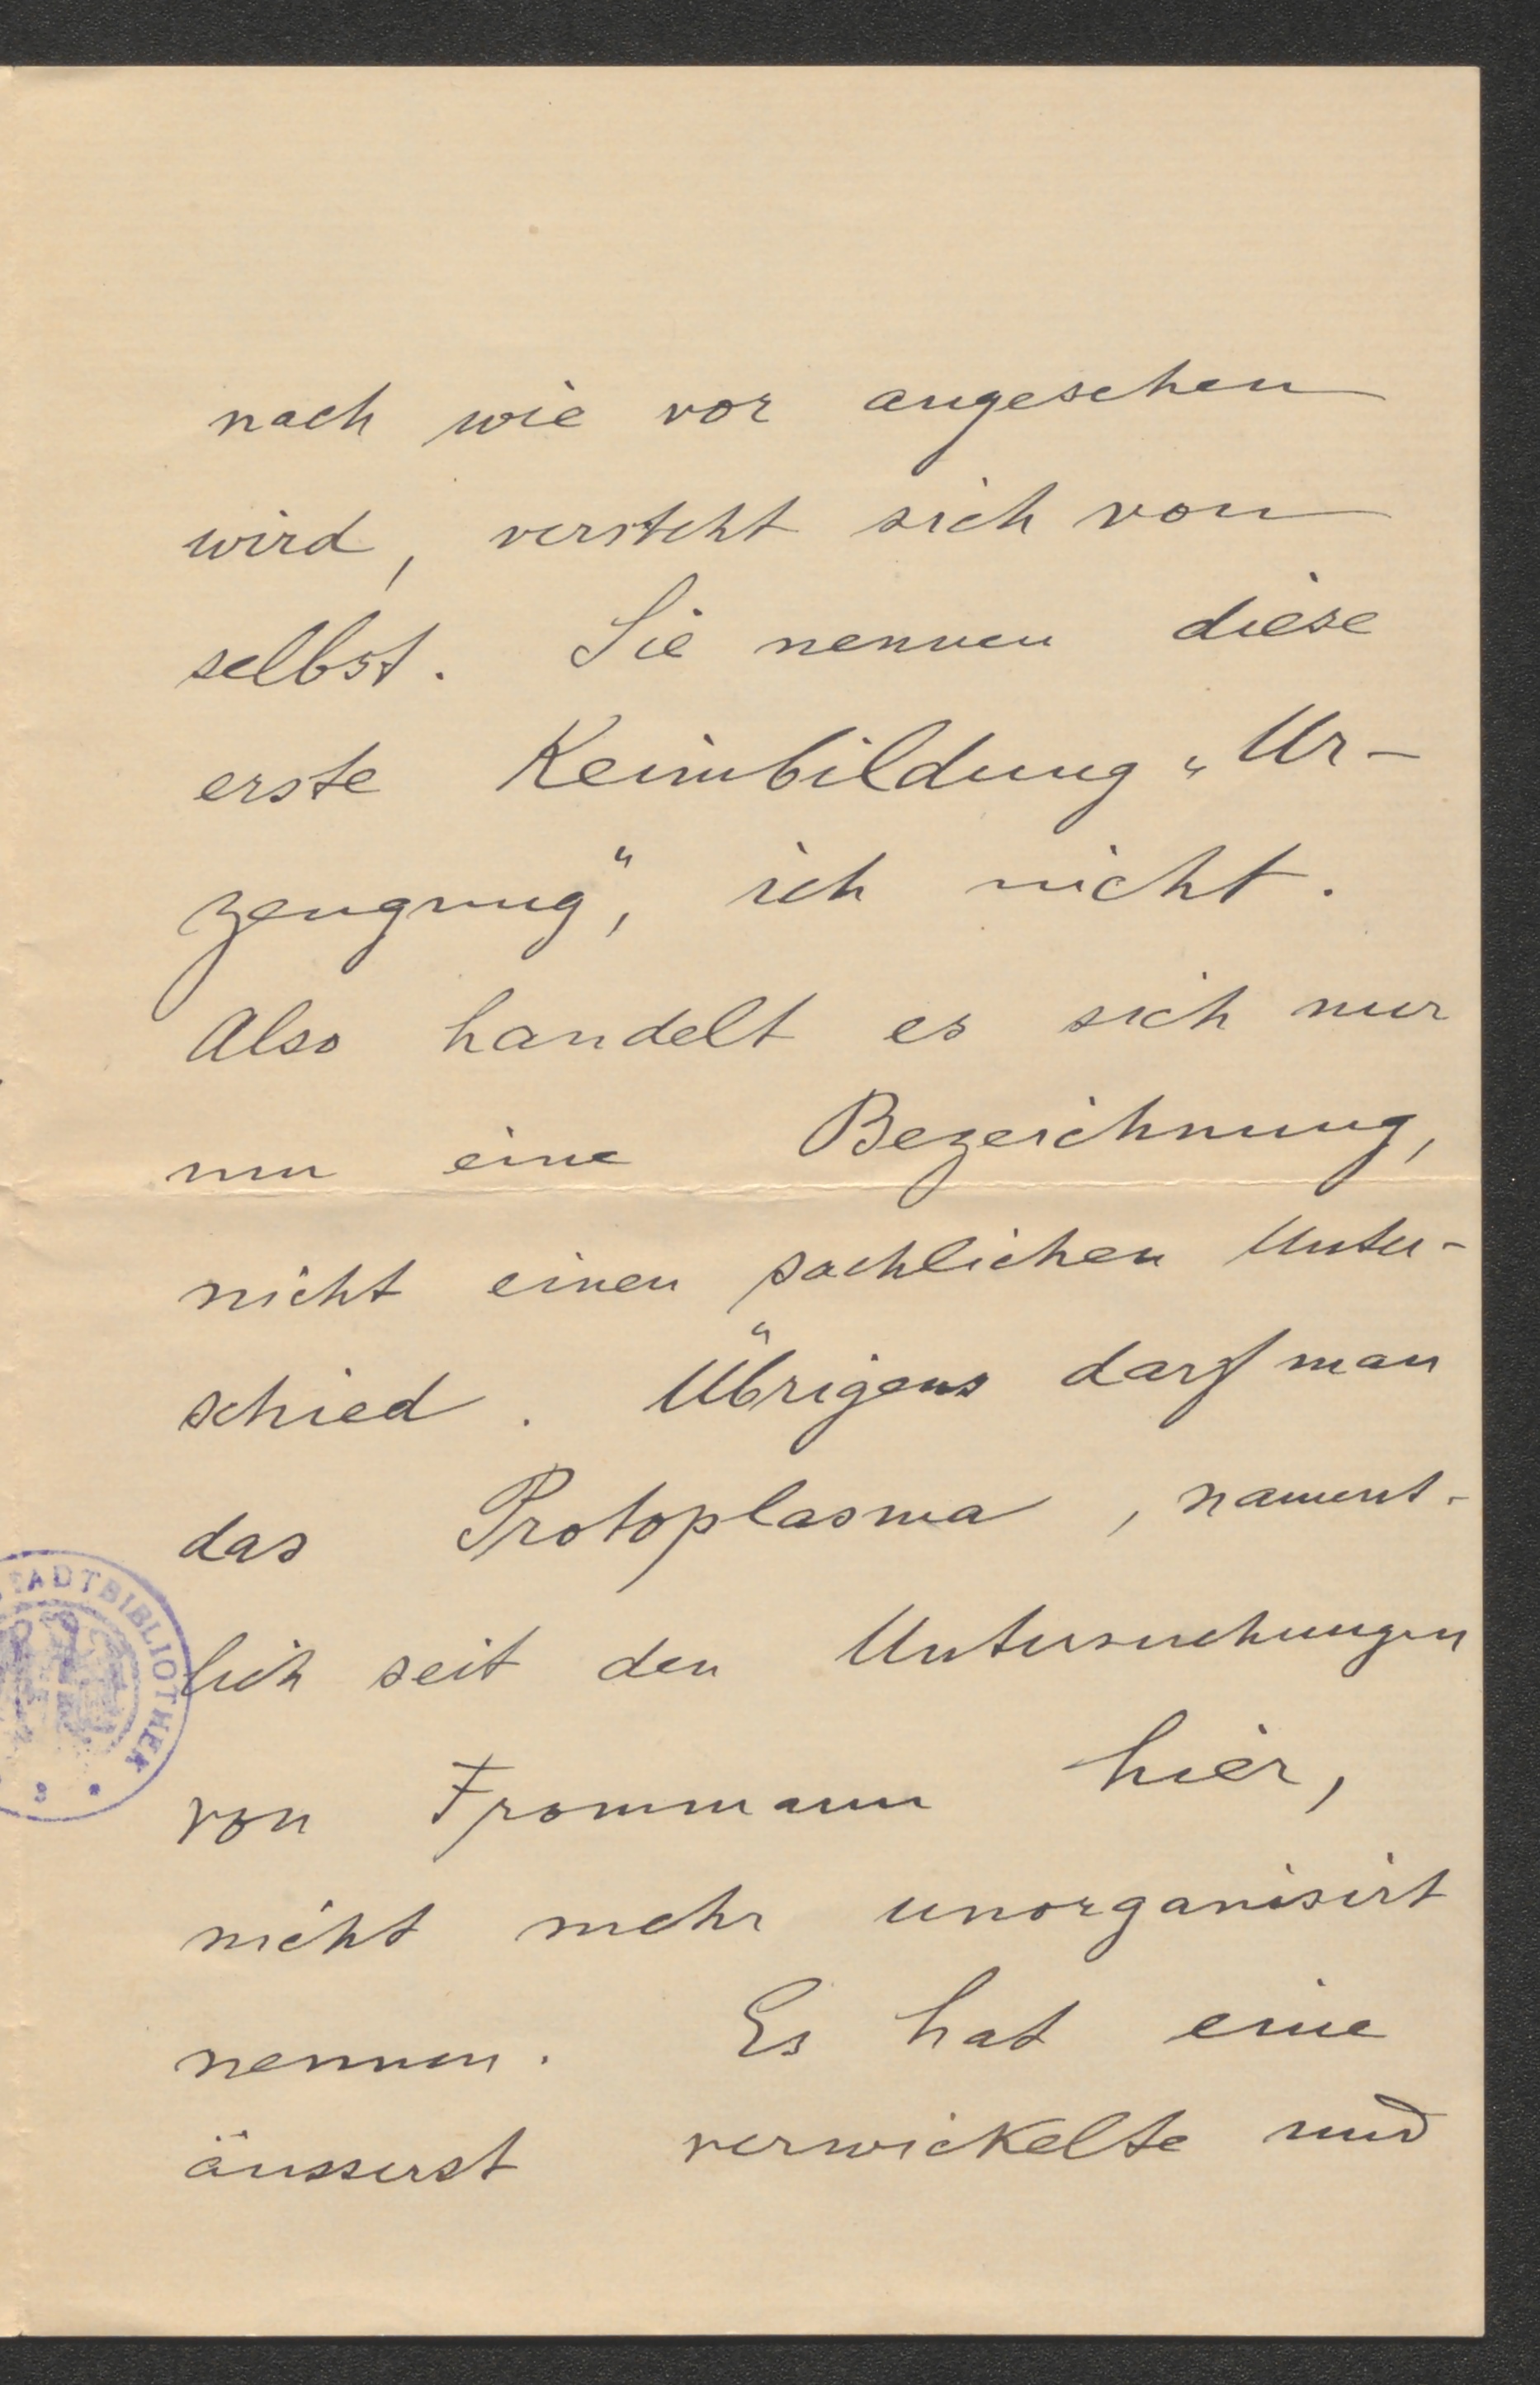 nach wie vor angesehen
wird, versteht sich von
selbst. Sie nennen diese
erste Keimbildung „Ur-
zeugung“, ich nicht.
Also handelt es sich nur
um eine Bezeichnung,
nicht einen sachlichen Unter-
schied. Übrigens darf man
das Protoplasma, nament-
lich seit den Untersuchungen
von Frommann hier,
nicht mehr unorganisirt
nennen. Es hat eine
äusserst verwickelte und
STADTBIBLIOTHEK